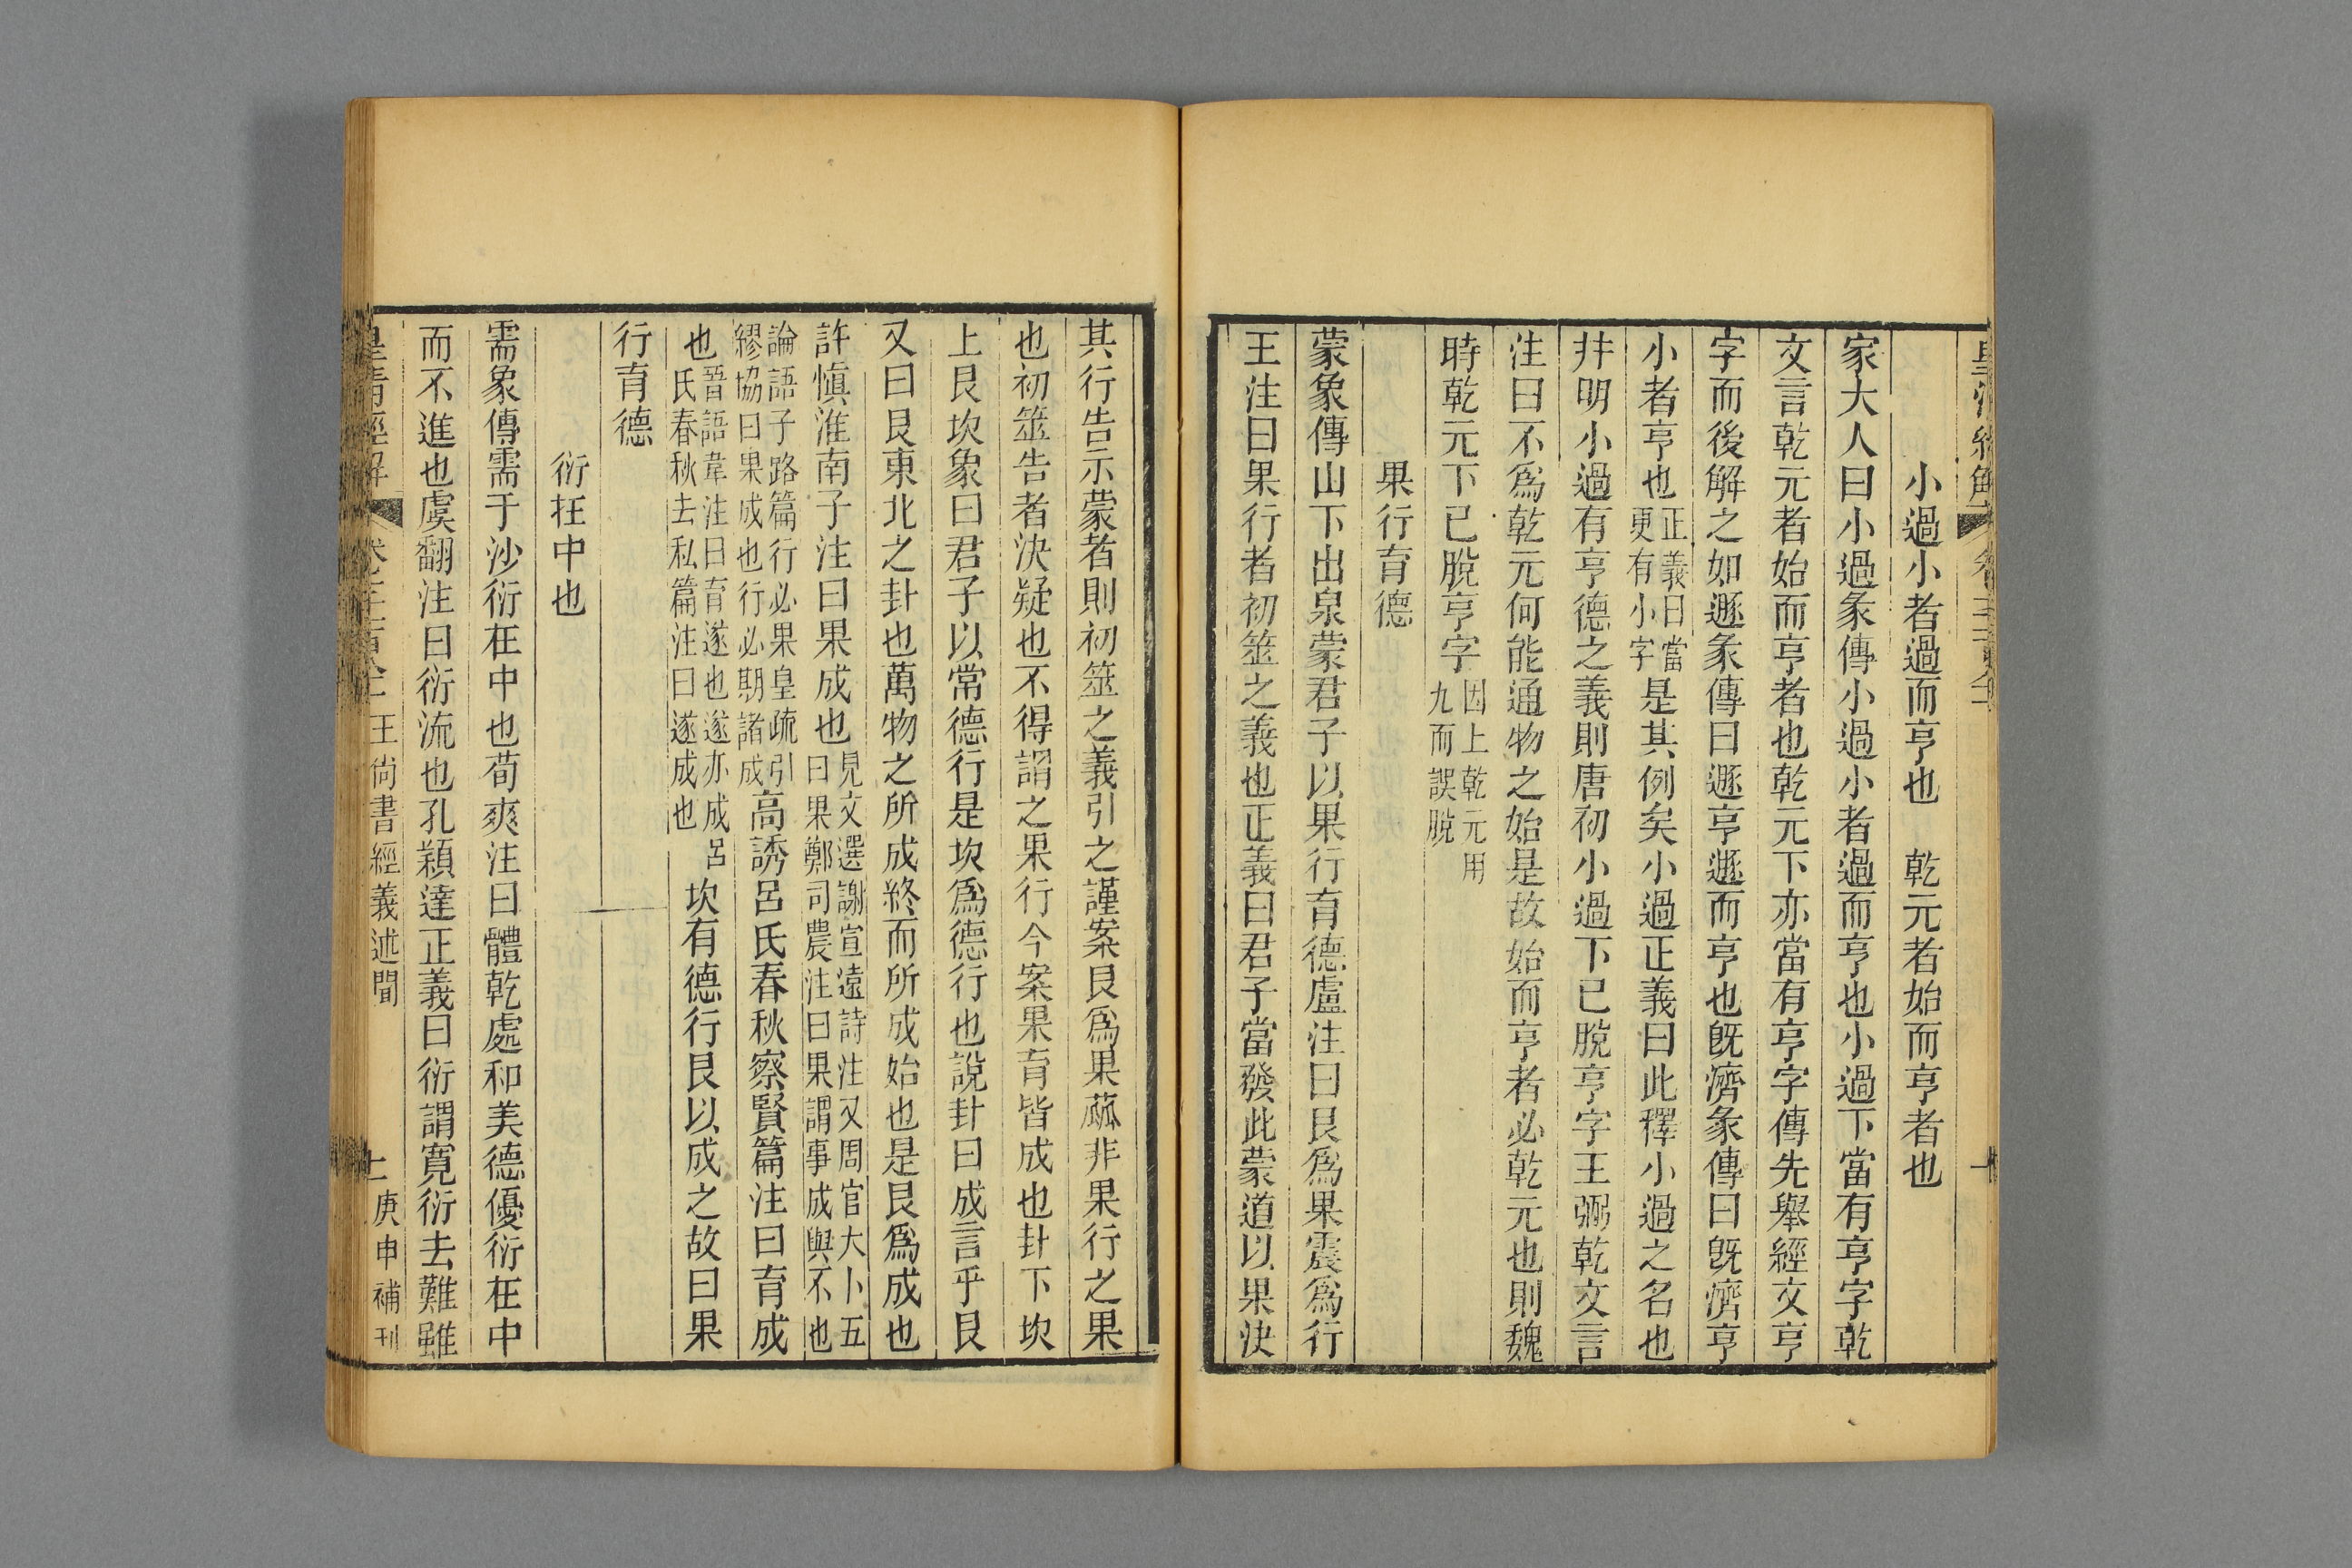 小過小者過而亨也　乾元者始而亨者也
家大人曰小過彖傳小過小者過而亨也小過下當有亨字乾
文言乾元者始而亨者也乾元下亦當有亨字傳先舉經文亨
字而後解之如遯彖傳曰遯亨遯而亨也旣濟彖傳曰旣濟亨
小者亨也正義曰當更有小字是其例矣小過正義曰此釋小過之名也
并明小過有亨德之義則唐初小過下已脫亨字王弼乾文言
注曰不爲乾元何能通物之始是故始而亨者必乾元也則魏
時乾元下已脫亨字因上乾元用九而誤脫
果行育德
蒙象傳山下出泉蒙君子以果行育德盧注曰艮爲果震爲行
王注曰果行者初筮之義也正義曰君子當發此蒙道以果決
其行告示蒙者則初筮之義引之謹案艮爲果蓏非果行之果
也初筮告者決疑也不得謂之果行今案果育皆成也卦下坎
上艮坎象曰君子以常德行是坎爲德行也說卦曰成言乎艮
又曰艮東北之卦也萬物之所成終而所成始也是艮爲成也
許愼淮南子注曰果成也見文選謝宣遠詩注又周官大卜五曰果鄭司農注曰果謂事成與不也
論語子路篇行必果皇疏引繆協曰果成也行必期諸成高誘呂氏春秋察賢篇注曰育成
也晉語韋注曰育遂也遂亦成呂氏春秋去私篇注曰遂成也坎有德行艮以成之故曰果
行育德
衍在中也
需象傳需于沙衍在中也荀爽注曰體乾處和美德優衍在中
而不進也虞翻注曰衍流也孔穎達正義曰衍謂寬衍去難雖
皇清經解　王尙書經義述聞　庚申補刊